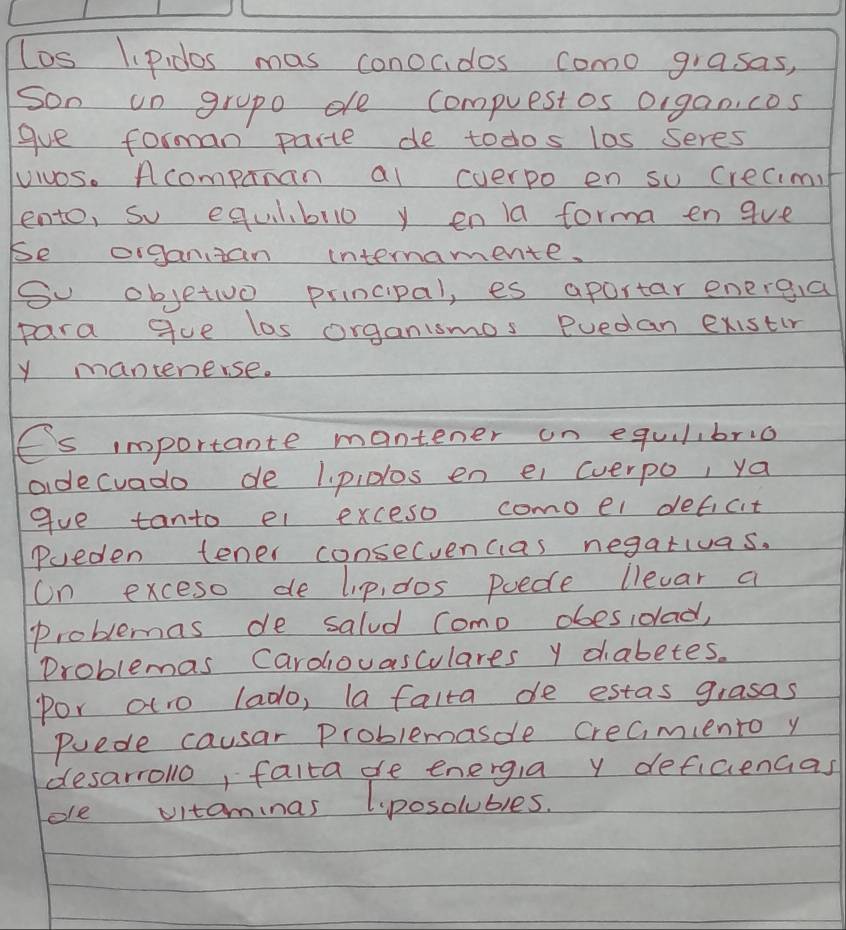 Los lipidos mas conocidos como grasas,
Son un grupo de compuestos organicos
que forman parte de todos los seres
vivos. Acompañan al cuerpo en su crecimi
ento, su equilibrio y en la forma en que
se organizan internamente.
Su objetivo principal, es aportar energia
para que los organismos puedan existir
y mantenerse.
Es importante mantener un equilibrio
adecuado de lipidos en el cuerpo, ya
que tanto el exceso como el deficit
pueden tener consecuencias negativas.
Un exceso de lipidos puede llevar a
problemas de salud como obesidad,
problemas cardiovasculares y diabetes.
Por otro lado, la falta de estas grasas
puede causar problemas de crecimiento y
desarrollo, falta de energia y deficiencias
de vitaminas liposolubles.